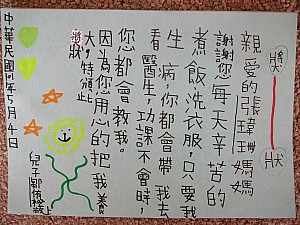 獎狀
親愛的張瑋珊媽媽
謝謝您每天辛苦的
煮飯、洗衣服,只要我
生病,你都會帶我去
看醫生,功課不會時,
您都會教我。
因為您用心的把我養
大,特頒此
獎狀
兒子 上
中華民國年5月4日